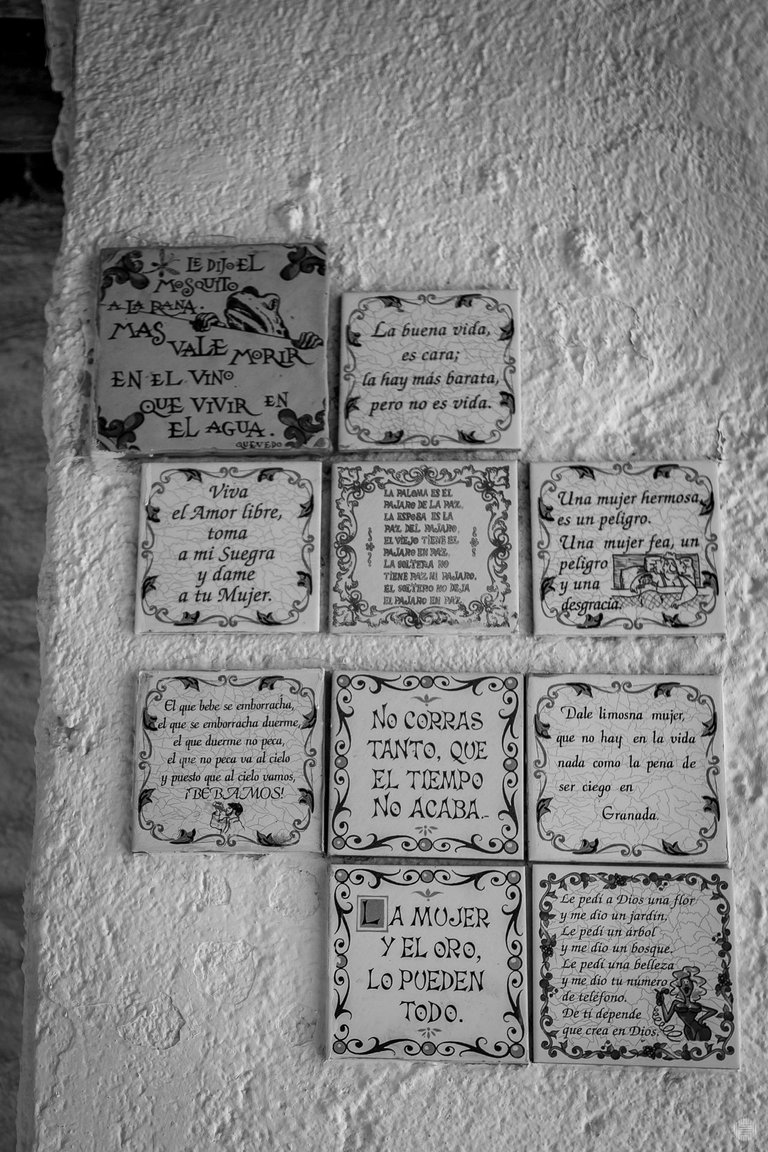 LE DIJO EL
MOSQUITO
A LA RANA.
MAS
VALE MORIR
EN EL VINO
QUE VIVIR EN
EL AGUA.
QUEVEDO
La buena vida,
es cara;
la hay más barata,
pero no es vida.
Viva
el Amor libre,
toma
a mi Suegra
y dame
a tu Mujer.
LA PALOMA ES EL
PAJARO DE LA PAZ,
LA ESPOSA ES LA
PAZ DEL PAJARO,
EL VIEJO TIENE EL
PAJARO EN PAZ,
LA SOLTERA NO
TIENE PAZ NI PAJARO,
EL SOLTERO NO DEJA
EL PAJARO EN PAZ.
Una mujer hermosa,
es un peligro.
Una mujer fea, un
peligro
y una
desgracia.
El que bebe se emborracha,
el que se emborracha duerme,
el que duerme no peca,
el que no peca va al cielo
y puesto que al cielo vamos,
¡BEBAMOS!
NO CORRAS
TANTO, QUE
EL TIEMPO
NO ACABA.
Dale limosna mujer,
que no hay en la vida
nada como la pena de
ser ciego en
Granada
LA MUJER
Y EL ORO,
LO PUEDEN
TODO.
Le pedí a Dios una flor
y me dio un jardín,
Le pedí un árbol
y me dio un bosque.
Le pedí una belleza
y me dio tu número
de teléfono.
De ti depende
que crea en Dios.